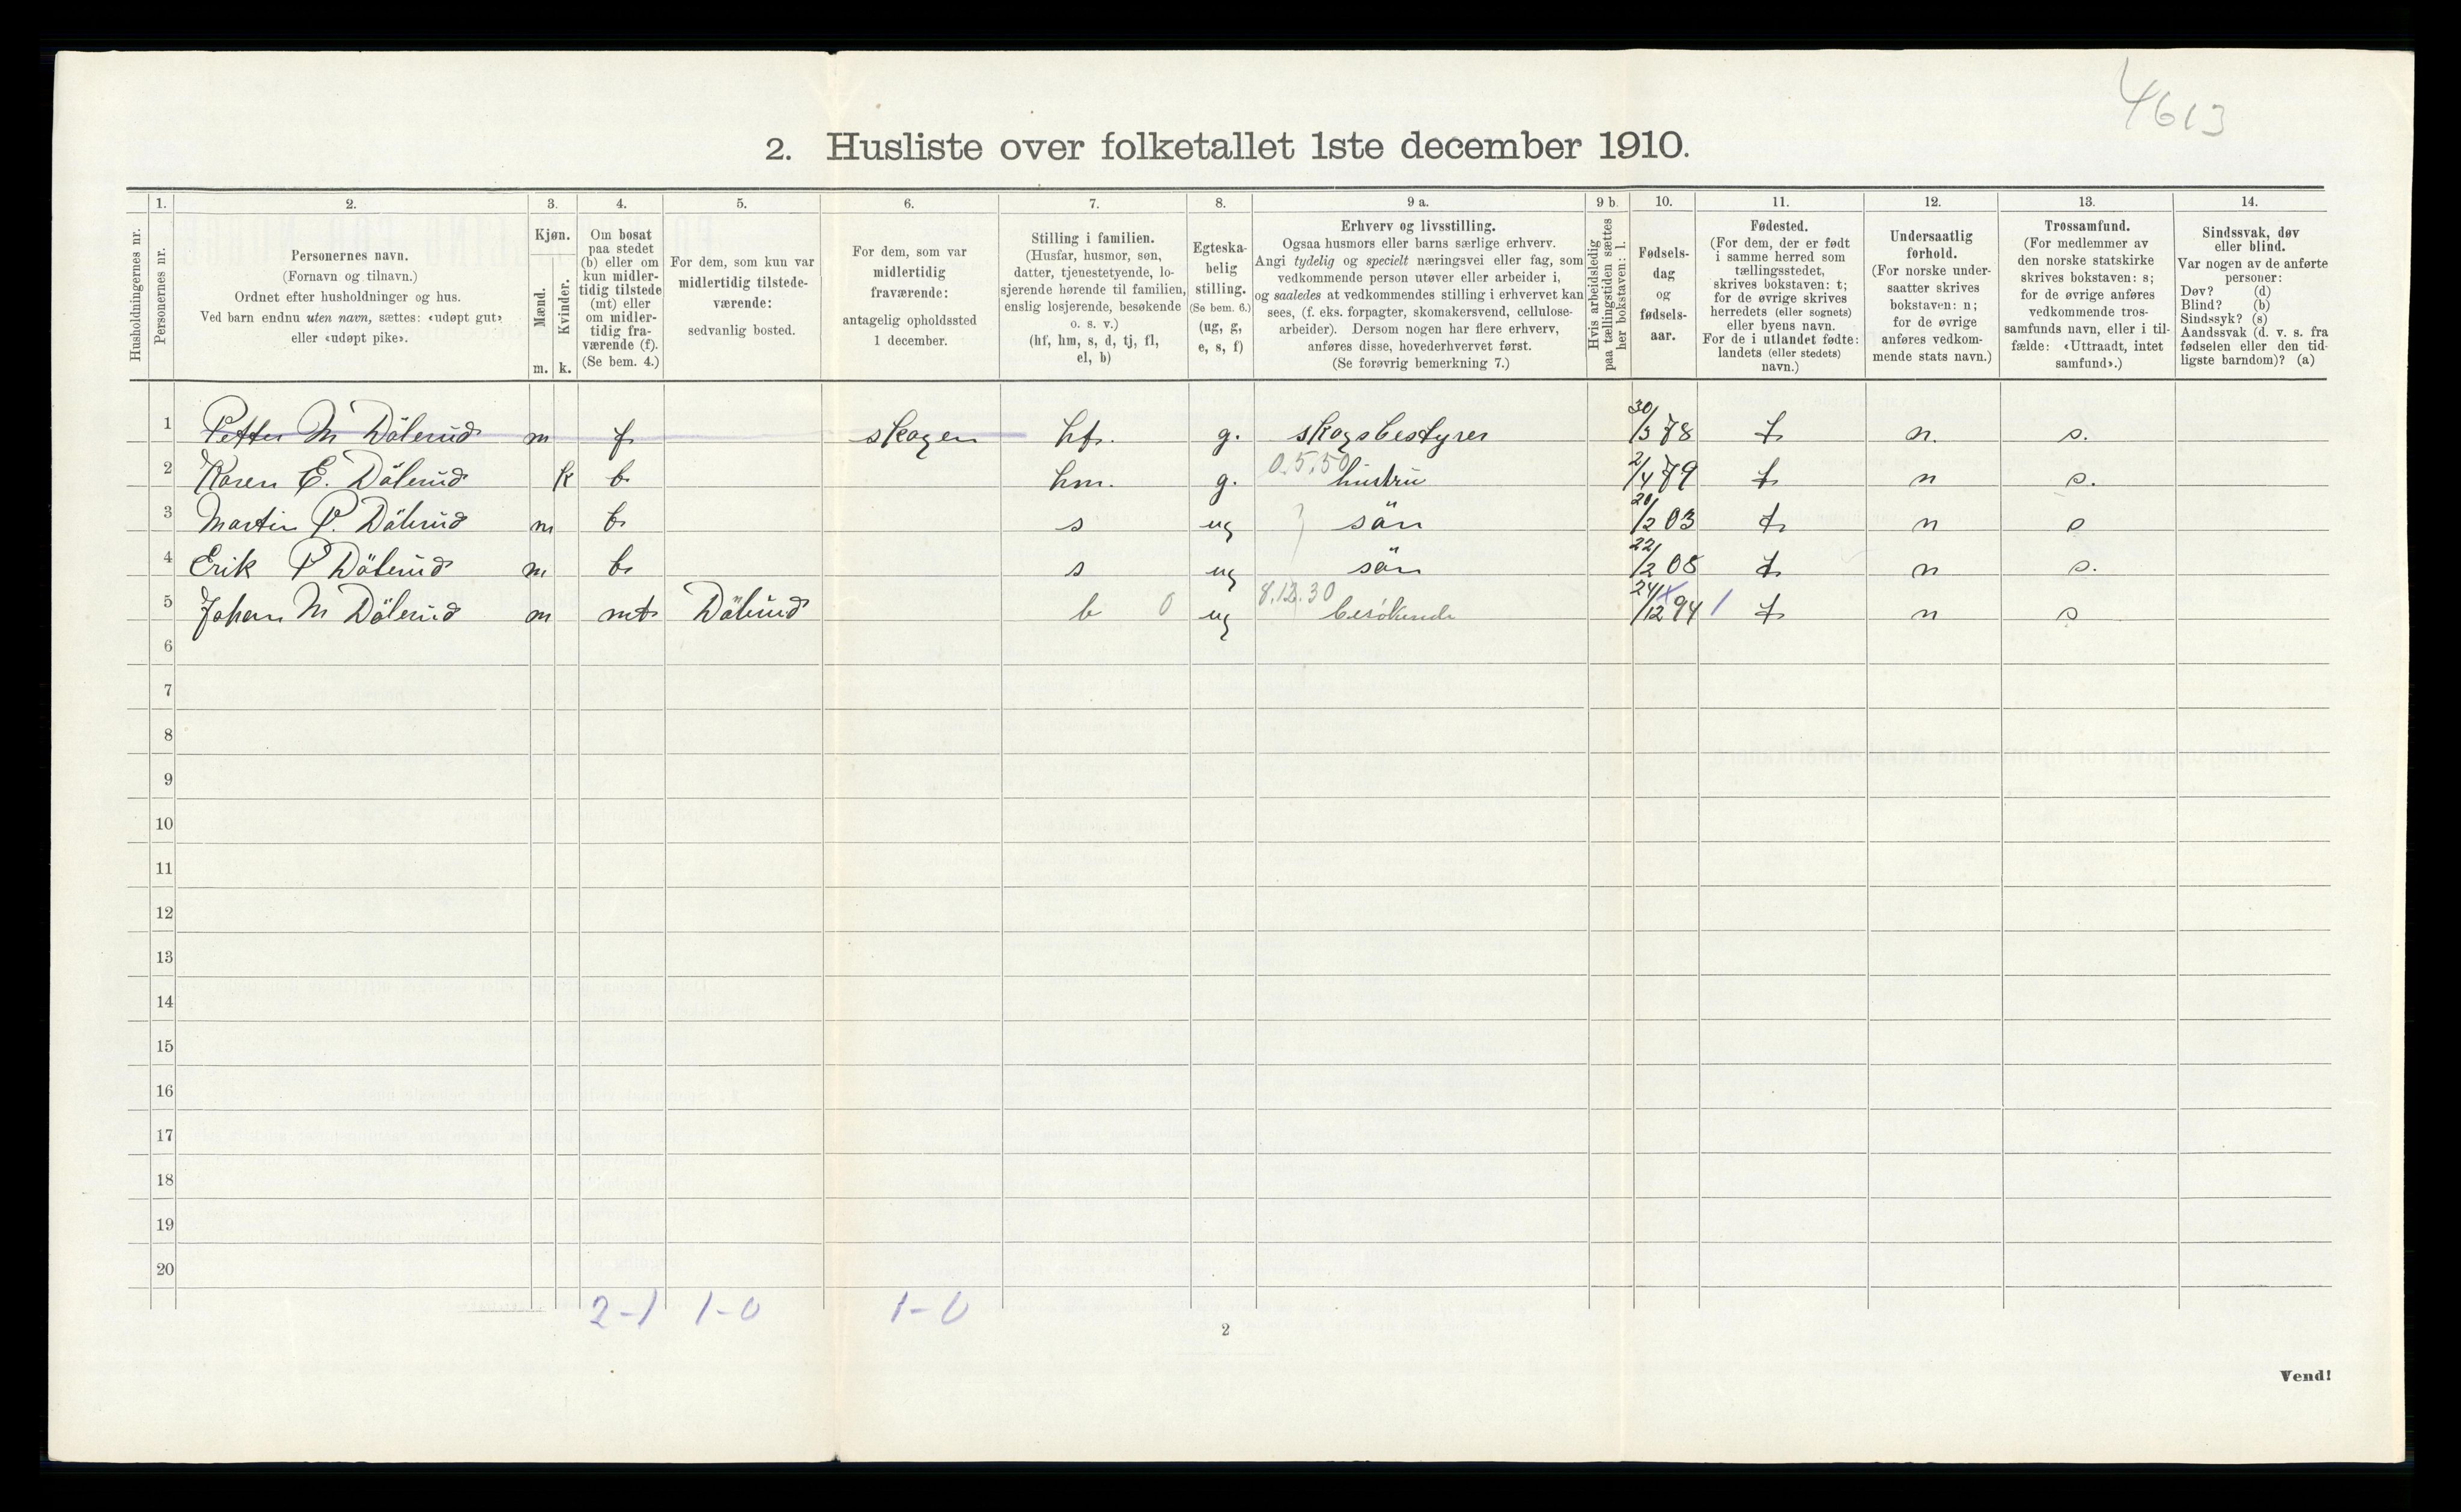 4613
2. Husliste over folketallet 1ste december 1910.
1. 2. 3. 4. 5. 6. 7. 8. 9 a. 9 b. 10. 11. 12. 13. 14.
Husholdningernes nr.
Personernes nr.
Personernes navn.
(Fornavn og tilnavn.)
Ordnet efter husholdninger og hus.
Ved barn endnu uten navn, sættes: «udøpt gut»
eller «udøpt pike».
Kjøn.
Mænd.
Kvinder.
m. k.
Om bosat
paa stedet
(b) eller om
kun midler-
tidig tilstede
(mt) eller
om midler-
tidig fra-
værende (f).
(Se bem. 4.)
For dem, som kun var
midlertidig tilstede-
værende:
sedvanlig bosted.
For dem, som var
midlertidig
fraværende:
antagelig opholdssted
1 december.
Stilling i familien.
(Husfar, husmor, søn,
datter, tjenestetyende, lo-
sjerende hørende til familien,
enslig losjerende, besøkende
o. s. v.)
(hf, hm, s, d, tj, fl,
el, b)
Egteska-
belig
stilling.
(Se bem. 6.)
(ug, g,
e, s, f)
Erhverv og livsstilling.
Ogsaa husmors eller barns særlige erhverv.
Angi tydelig og specielt næringsvei eller fag, som
vedkommende person utøver eller arbeider i,
og saaledes at vedkommendes stilling i erhvervet kan
sees, (f. eks. forpagter, skomakersvend, cellulose-
arbeider). Dersom nogen har flere erhverv,
anføres disse, hovederhvervet først.
(Se forøvrig bemerkning 7.)
Hvis arbeidsledig
paa tællingstiden sættes
her bokstaven: l.
Fødsels-
dag
og
fødsels-
aar.
Fødested.
(For dem, der er født
i samme herred som
tællingsstedet,
skrives bokstaven: t;
for de øvrige skrives
herredets (eller sognets)
eller byens navn.
For de i utlandet fødte:
landets (eller stedets)
navn.)
Undersaatlig
forhold.
(For norske under-
saatter skrives
bokstaven: n;
for de øvrige
anføres vedkom-
mende stats navn.)
Trossamfund.
(For medlemmer av
den norske statskirke
skrives bokstaven: s;
for de øvrige anføres
vedkommende tros-
samfunds navn, eller i til-
fælde: «Uttraadt, intet
samfund».)
Sindssvak, døv
eller blind.
Var nogen av de anførte
personer:
Døv? (d)
Blind? (b)
Sindssyk? (s)
Aandssvak (d. v. s. fra
fødselen eller den tid-
ligste barndom)? (a)
1 Petter M Dölerud m f skogen hf. g. skogsbestyrer 30/3 78 t n. s.
2 Karen E. Dölerud k b hm. g. 0.5.50 hustru 2/4 79 t n s.
3 Martin P. Dölerud m b s ug sön 20/2 03 t n s
4 Erik P Dölerud m b s ug sön 22/2 08 t n s.
5 Johan M Dölerud m mt Dölerud b 0 ug 8.12.30 besökende 24/12 94 t n s
6
7
8
9
10
11
12
13
14
15
16
17
18
19
20
2-1 1-0 1-0
2
Vend!